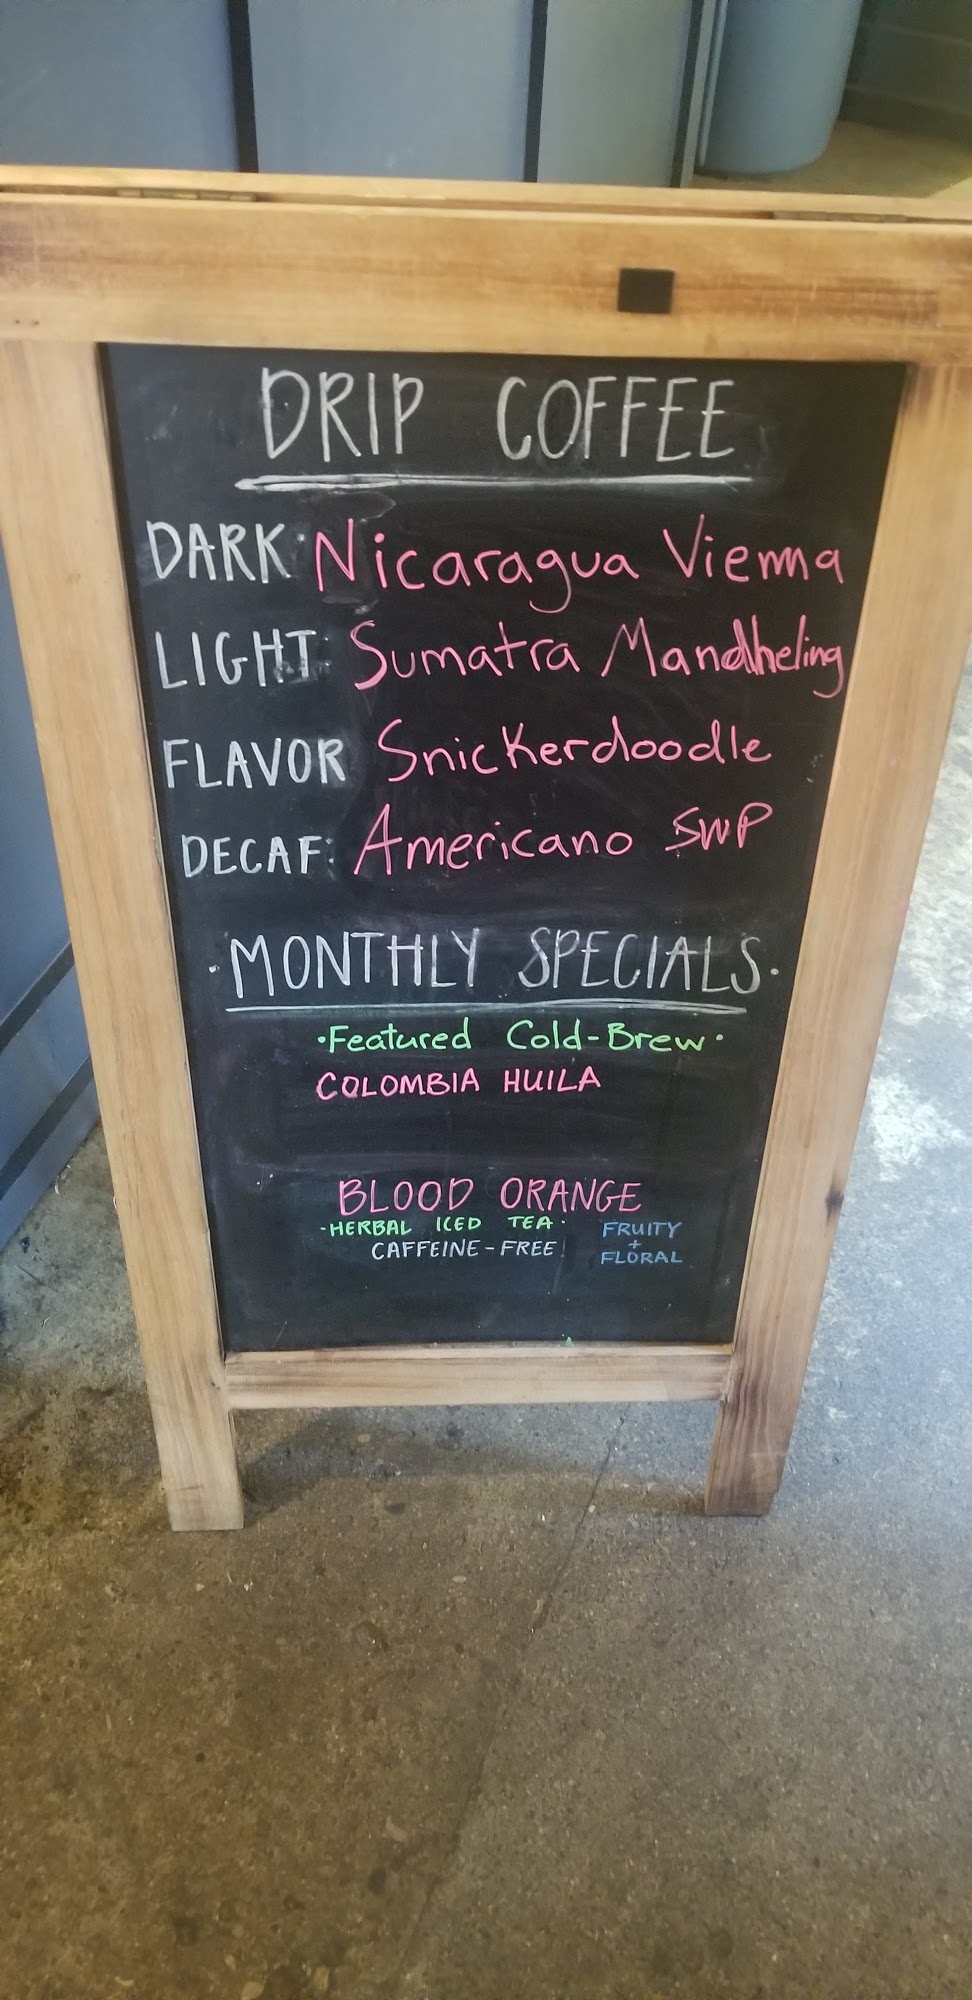 DRIP COFFEE
DARK: Nicaragua Vienna
LIGHT: Sumatra Mandheling
FLAVOR Snickerdoodle
DECAF: Americano SWP
·MONTHLY SPECIALS·
·Featured Cold-Brew·
COLOMBIA HUILA
BLOOD ORANGE
-HERBAL ICED TEA-
CAFFEINE-FREE!
FRUITY
+
FLORAL